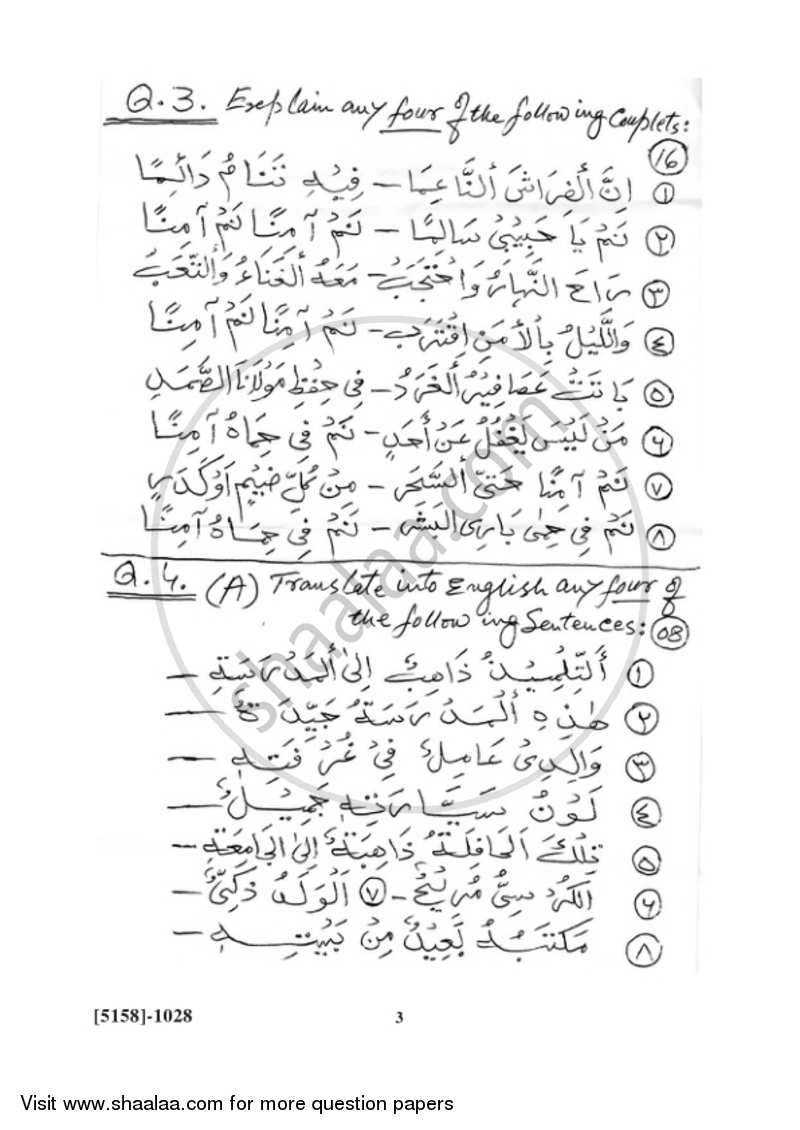 Q.3. Explain any four of the following Couplets:
(16)
① اِنَّ اَلْفِرَاشَ اَلنَّاعِمَا – فِيْهِ تَنَامُ دَائِمًا
② نَمْ يَا حَبِيْبِيْ سَالِمًا – نَمْ آمِنًا نَمْ آمِنًا
③ رَاحَ النَّهَارُ وَاحْتَجَبَ – مَعَهُ اَلْعَنَاءُ وَالتَّعَبُ
④ وَاللَّيْلُ بِالأَمْنِ اِقْتَرَبَ – نَمْ آمِنًا نَمْ آمِنًا
⑤ بَاتَتْ عَصَافِيْرُ اَلْغَرَدُ – فِي حِفْظِ مَوْلَانَا الصَّمَدِ
⑥ مَنْ لَيْسَ يَغْفُلُ عَنْ أَحَدٍ – نَمْ فِي حِمَاهُ آمِنًا
⑦ نَمْ آمِنًا حَتَّى السَّحَرِ – مِنْ كُلِّ ضَيْمٍ اَوْ كَدَرٍ
⑧ نَمْ فِي حِمٰى بَارِي البَشَرِ – نَمْ فِي حِمَاهُ آمِنًا
Q.4. (A) Translate into English any four of
the following Sentences: (08)
① اَلتِّلْمِيْذُ ذَاهِبٌ اِلىٰ اَلْمَدْرَسَةِ –
② هٰذِهِ اَلْمَدْرَسَةُ جَيِّدَةٌ –
③ وَالِدِىْ عَامِلٌ فِيْ غُرْفَتِهِ –
④ لَوْنُ سَيَّارَتِهِ جَمِيْلٌ –
⑤ تِلْكَ اَلحَافِلَةُ ذَاهِبَةٌ اِلىٰ الجَامِعَةِ –
⑥ اَلكُرْسِيُّ مُرِيْحٌ – ⑦ اَلْوَلَدُ ذَكِيٌّ –
⑧ مَكْتَبُهُ بَعِيْدٌ مِنْ بَيْتِهِ –
[5158]-1028 3
Visit www.shaalaa.com for more question papers
shaalaa.com